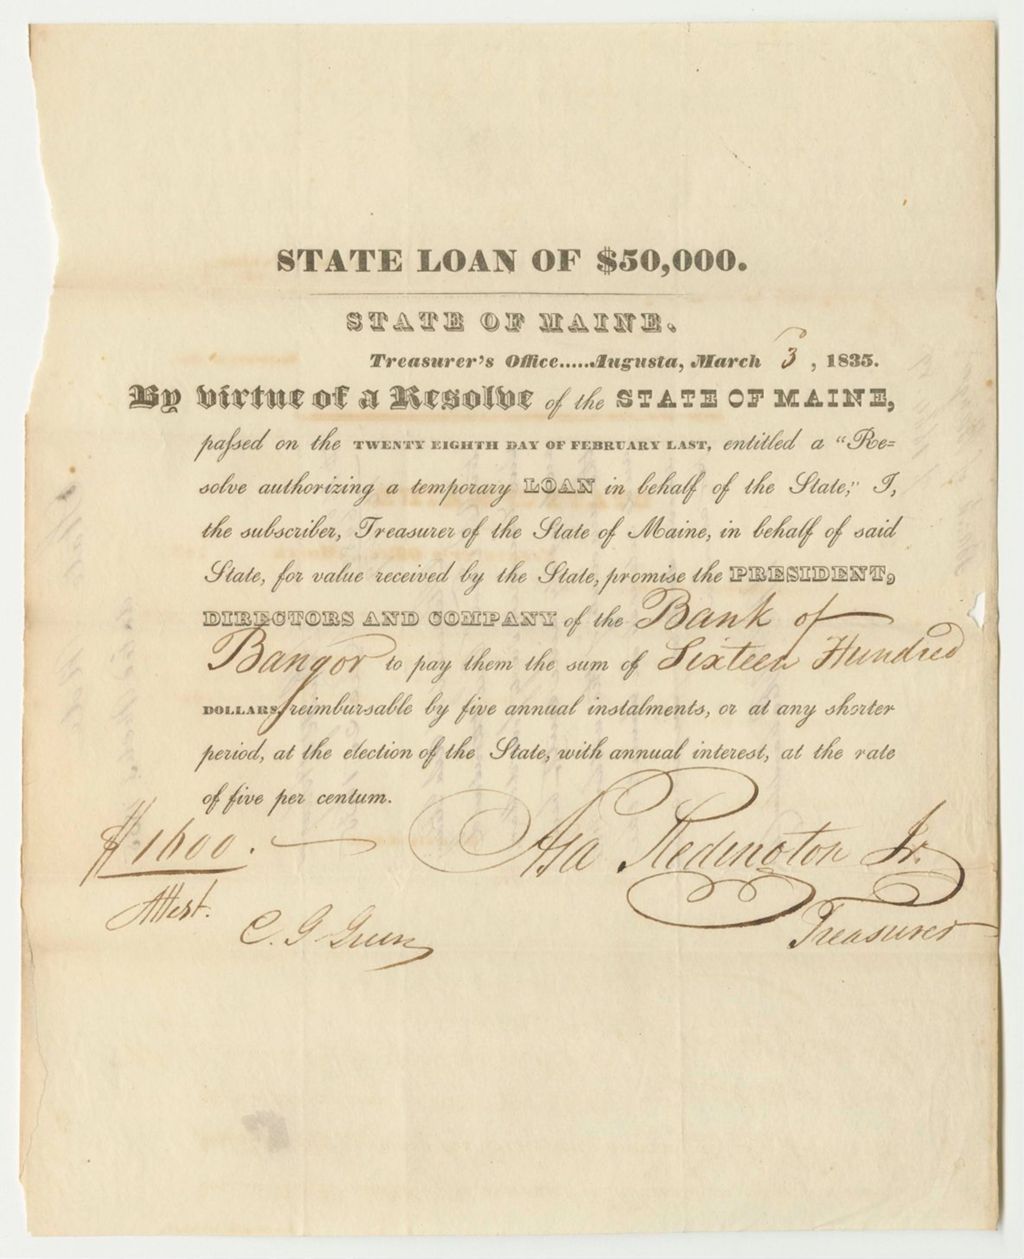 STATE LOAN OF $50,000.
STATE OF MAINE.
Treasurer's Office.....Augusta, March 3, 1835.
By virtue of a Resolve of the STATE OF MAINE,
passed on the TWENTY EIGHTH DAY OF FEBRUARY LAST, entitled a "Re=
solve authorizing a temporary LOAN in behalf of the State;" I,
the subscriber, Treasurer of the State of Maine, in behalf of said
State, for value received by the State, promise the PRESIDENT,
DIRECTORS AND COMPANY of the Bank of
Bangor to pay them the sum of Sixteen Hundred
DOLLARS, reimbursable by five annual instalments, or at any shorter
period, at the election of the State, with annual interest, at the rate
of five per centum.
$1600. Asa Redington Jr.
Treasurer
Attest.
C. G.